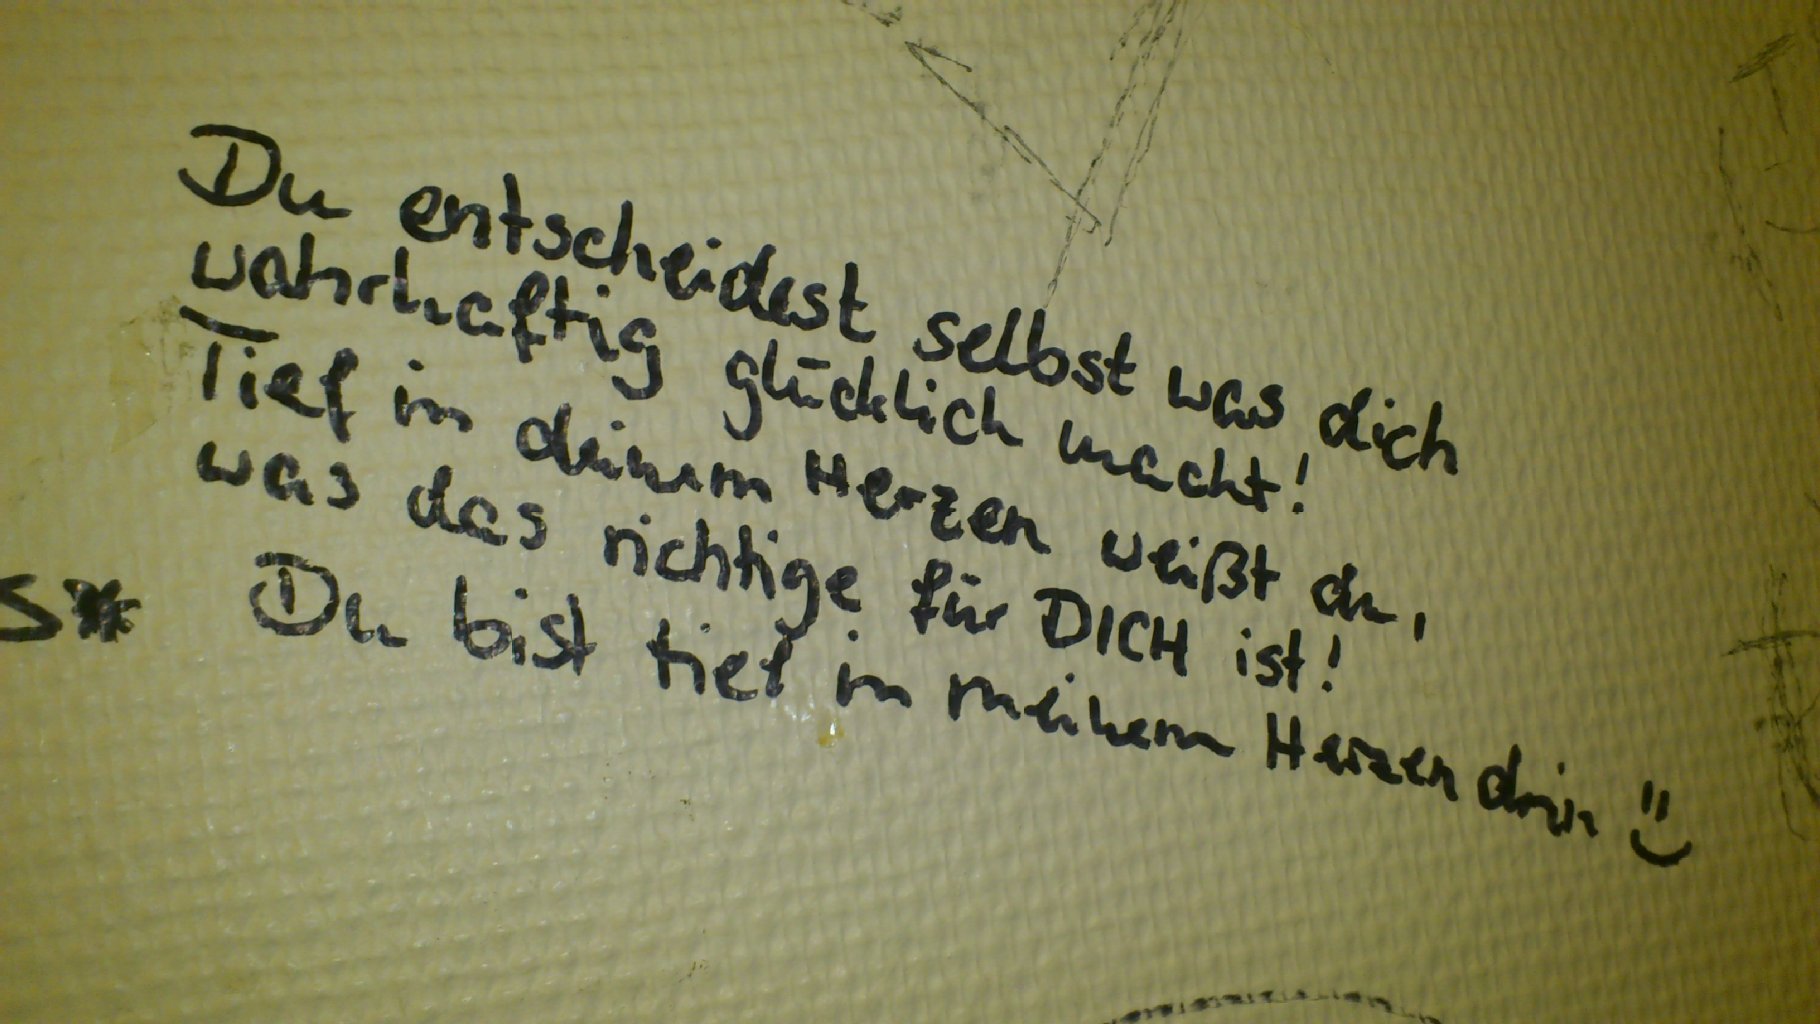 Du entscheidest selbst was dich
wahrhaftig glücklich macht!
Tief in deinem Herzen weißt du,
was das richtige für DICH ist!
S* Du bist tief in meinem Herzen drin :)